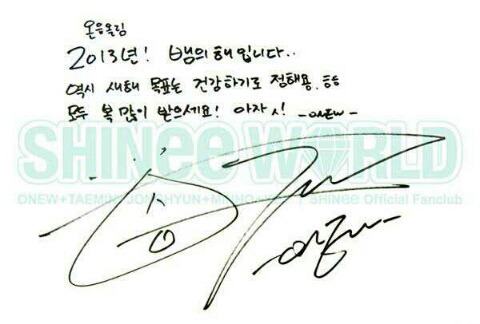 온유올림
2013년! 뱀의 해입니다..
역시 새해 목표는 건강하기로 정해용. ㅎㅎ
모두 복 많이 받으세요! 아자 시! -ONEW-
SHINee WORLD
ONEW+TAEMIN+JONGHYUN+MINHO+KEY | SHINee Official Fanclub